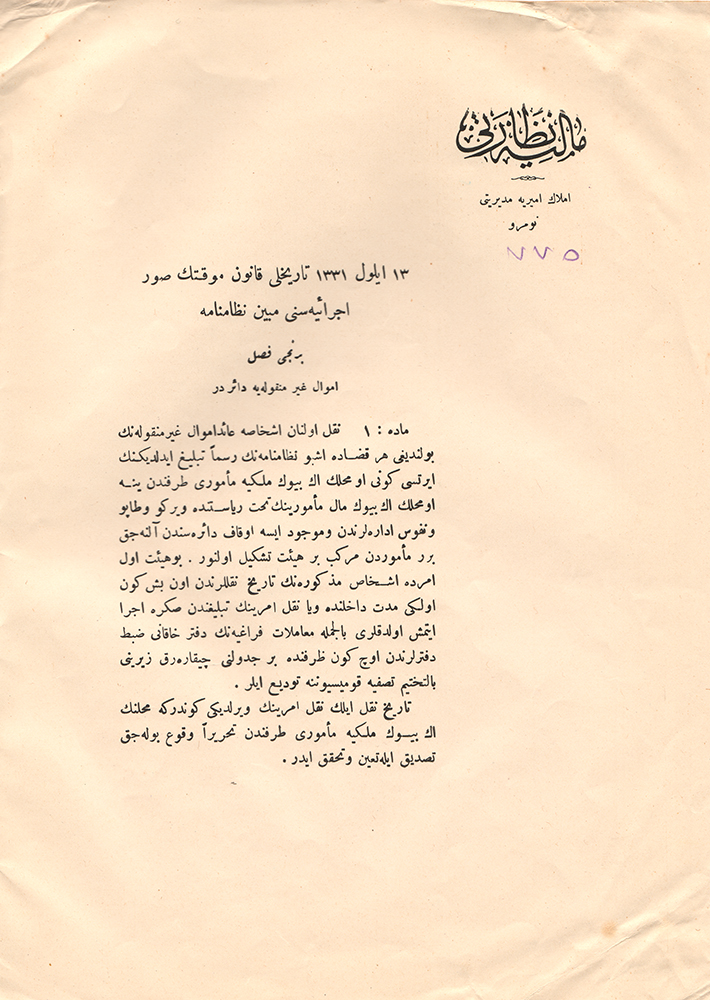 مالیه نظارتی
املاك امیریه مدیریتی
نومرو
٧٧٥
١٣ ایلول ١٣٣١ تاریخلی قانون موقتك صور
اجرائیه‌سنی مبین نظامنامه
برنجی فصل
اموال غیر منقوله‌یه دائر در
ماده : ١ نقل اولنان اشخاصه عائداموال غیرمنقوله‌نك
بولندیغی هر قضاده اشبو نظامنامه‌نك رسماً تبلیغ ایدلدیكنك
ایرتسی كونی او محلك اك بیوك ملكیه مأموری طرفندن ینه
اومحلك اك بیوك مال مأمورینك تحت ریاستنده ویركو وطاپو
ونفوس اداره‌لرندن وموجود ایسه اوقاف دائره‌سندن آلنه‌جق
برر مأموردن مركب بر هیئت تشكیل اولنور . بوهیئت اول
امرده اشخاص مذكوره‌نك تاریخ نقللرندن اون بش كون
اولكی مدت داخلنده ویا نقل امرینك تبلیغندن صكره اجرا
ایتمش اولدقلری بالجمله معاملات فراغیه‌نك دفتر خاقانی ضبط
دفترلرندن اوچ كون ظرفنده بر جدولنی چیقاره‌رق زیرینی
بالتختیم تصفیه قومیسیوننه تودیع ایلر .
تاریخ نقل ایلك نقل امرینك ویرلدیكی كوندركه محلنك
اك بیوك ملكیه مأموری طرفندن تحریراً وقوع بوله‌جق
تصدیق ایله‌تعین وتحقق ایدر .